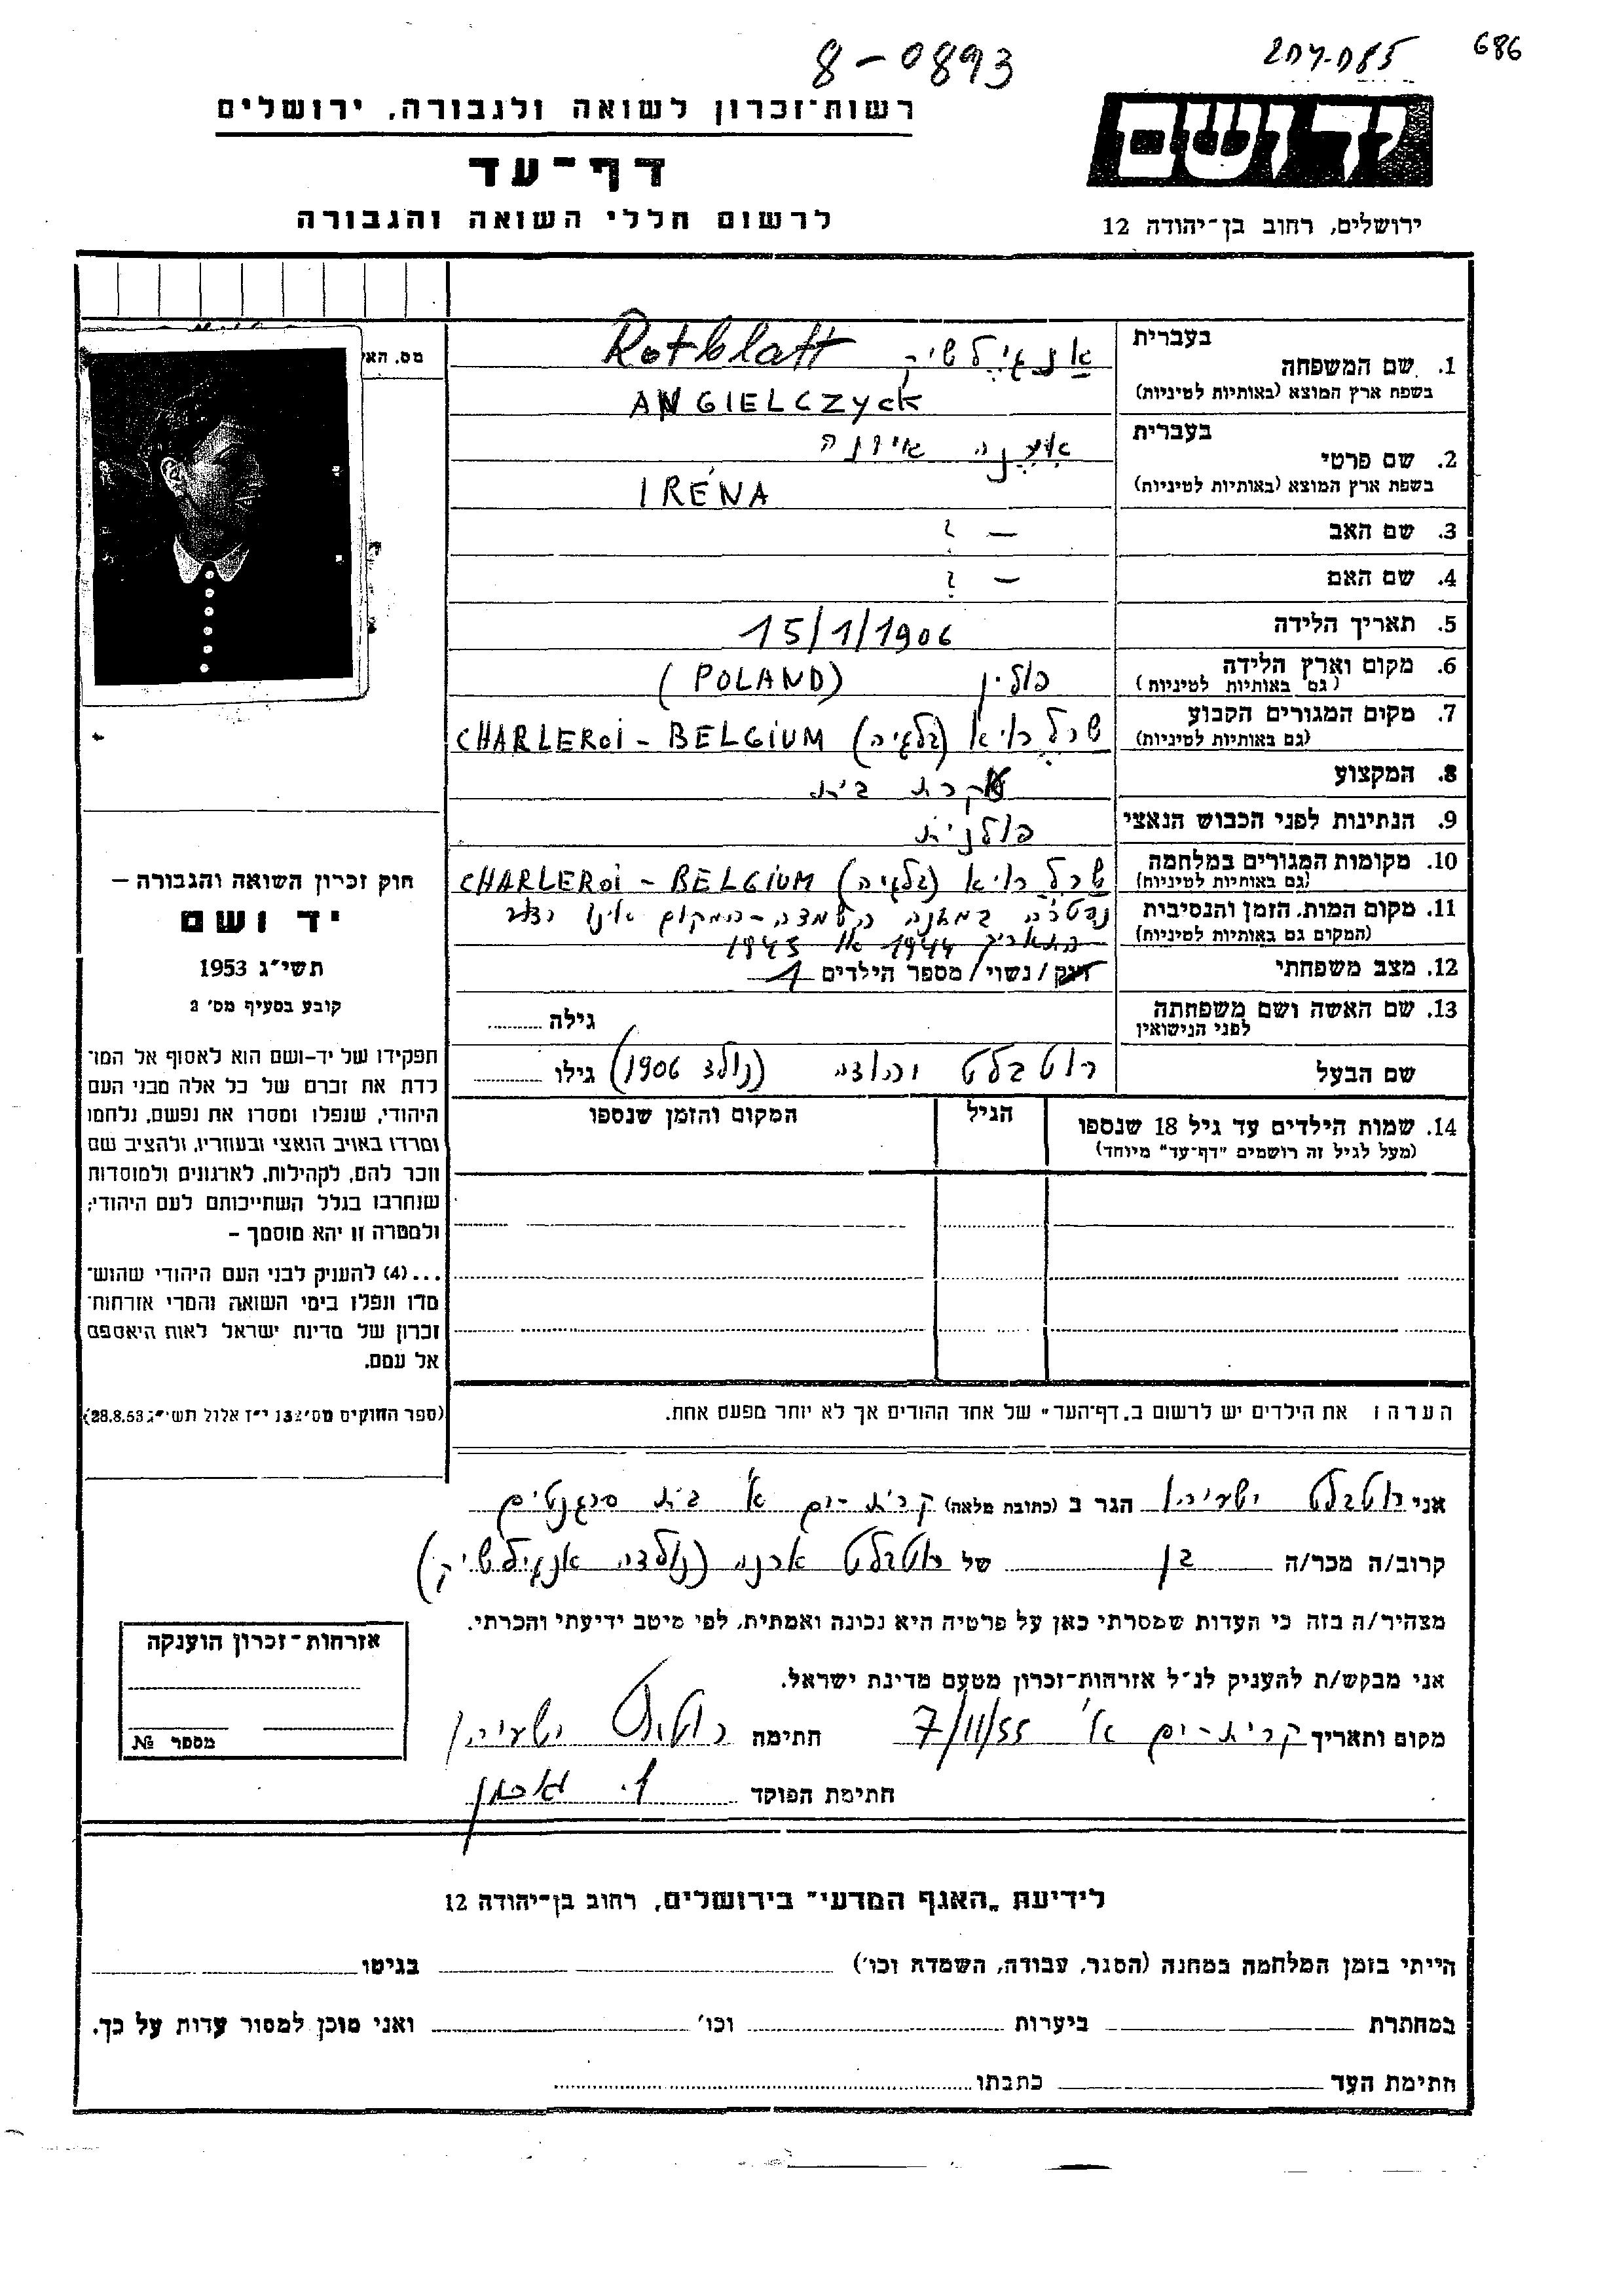 8-0893
207-085
686
רשות־זכרון לשואה ולגבורה, ירושלים
יד ושם
דף־עד
לרשום חללי השואה והגבורה
ירושלים, רחוב בן־יהודה 12
מס. האי
בעברית
1. שם המשפחה אנגילשיק Rotblatt
בשפת ארץ המוצא (באותיות לטיניות) ANGIELCZYCK
בעברית
2. שם פרטי אירנה
בשפת ארץ המוצא (באותיות לטיניות) IRÉNA
3. שם האב — ?
4. שם האם — ?
5. תאריך הלידה 15/1/1906
6. מקום וארץ הלידה פולין (POLAND)
(גם באותיות לטיניות)
7. מקום המגורים הקבוע שרלרויא (בלגיה) CHARLEROI - BELGIUM
(גם באותיות לטיניות)
8. המקצוע עקרת בית
9. הנתינות לפני הכבוש הנאצי פולנית
10. מקומות המגורים במלחמה שרלרויא (בלגיה) CHARLEROI - BELGIUM
(גם באותיות לטיניות)
11. מקום המות, הזמן והנסיבות במחנה השמדה - המקום אינו
(המקום גם באותיות לטיניות) בתאריך 1944 או 1943
12. מצב משפחתי רווק / נשוי / מספר הילדים 1
13. שם האשה ושם משפחתה גילה
לפני הנישואין
שם הבעל רוטבלט יהודה (נולד 1906) גילו
14. שמות הילדים עד גיל 18 שנספו הגיל המקום והזמן שנספו
(מעל לגיל זה רושמים "דף־עד" מיוחד)
הערה: את הילדים יש לרשום ב„דף־העד" של אחד ההורים אך לא יותר מפעם אחת.
חוק זכרון השואה והגבורה –
יד ושם
תשי״ג 1953
קובע בסעיף מס׳ 2
תפקידו של יד-ושם הוא לאסוף אל המו־
לדת את זכרם של כל אלה מבני העם
היהודי, שנפלו ומסרו את נפשם, נלחמו
ומרדו באויב הנאצי ובעוזריו, ולהציב שם
וזכר להם, לקהילות, לארגונים ולמוסדות
שנחרבו בגלל השתייכותם לעם היהודי;
ולמטרה זו יהא מוסמך –
...(4) להעניק לבני העם היהודי שהוש־
מדו ונפלו בימי השואה והמרי אזרחות־
זכרון של מדינת ישראל לאות היאספם
אל עמם.
(ספר החוקים מס׳ 132 י״ז אלול תשי״ג 28.8.53)
אני רוטבלט ישעיהו הגר ב (כתובת מלאה) קרית-ים א׳ בית סרגנטים
קרוב/ה מכר/ה בן של רוטבלט ארנה (נולדה אנגילשיק)
מצהיר/ה בזה כי העדות שמסרתי כאן על פרטיה היא נכונה ואמתית, לפי מיטב ידיעתי והכרתי.
אני מבקש/ת להעניק לנ״ל אזרחות-זכרון מטעם מדינת ישראל.
מקום ותאריך קרית-ים א׳ 7/11/55 חתימה רוטבלט ישעיהו
חתימת הפוקד
אזרחות־זכרון הוענקה
מספר №
לידיעת „האגף המדעי" בירושלים, רחוב בן־יהודה 12
הייתי בזמן המלחמה במחנה (הסגר, עבודה, השמדה וכו׳) בגיטו
במחתרת ביערות וכו׳ ואני מוכן למסור עדות על כך.
חתימת העד כתבתו